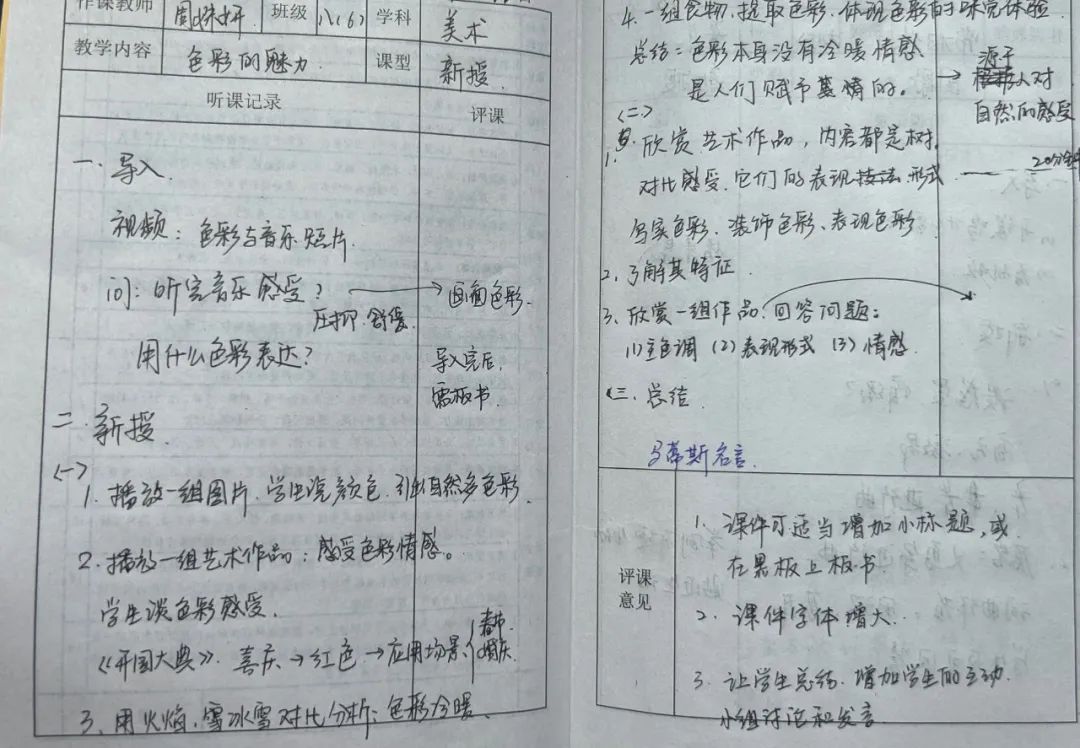 作课教师 周姝妍 班级 八(6) 学科 美术
教学内容 色彩的魅力 课型 新授
听课记录 评课
一. 导入
视频：色彩与音乐照片.
问：听完音乐感受？ → 画面色彩.
压抑.舒缓
用什么色彩表达？
导入完后，
需板书.
二. 新授
(一)
1. 播放一组图片. 学生说颜色. 引出自然多色彩.
2. 播放一组艺术作品：感受色彩情感。
学生谈色彩感受.
《开国大典》. 喜庆→红色→应用场景 春节 婚庆
3. 用火焰.雪冰雪对比分析：色彩冷暖.
4. 一组食物,提取色彩.体现色彩的味觉体验
总结：色彩本身没有冷暖情感
是人们赋予 情的。
→ 源于
人对
自然的感受
(二)
1. 欣赏艺术作品，内容都是树.
对比感受.它们的表现技法 形式 20分钟
写实色彩.装饰色彩、表现色彩
2. 了解其特征.
3. 欣赏一组作品.回答问题：
(1)主色调 (2)表现形式 (3)情感.
(三. 总结.
马蒂斯名言.
评课
意见
1. 课件可适当增加小标题,或
在黑板上板书.
2. 课件字体增大.
3. 让学生总结.增加学生的主动.
小组讨论和发言.